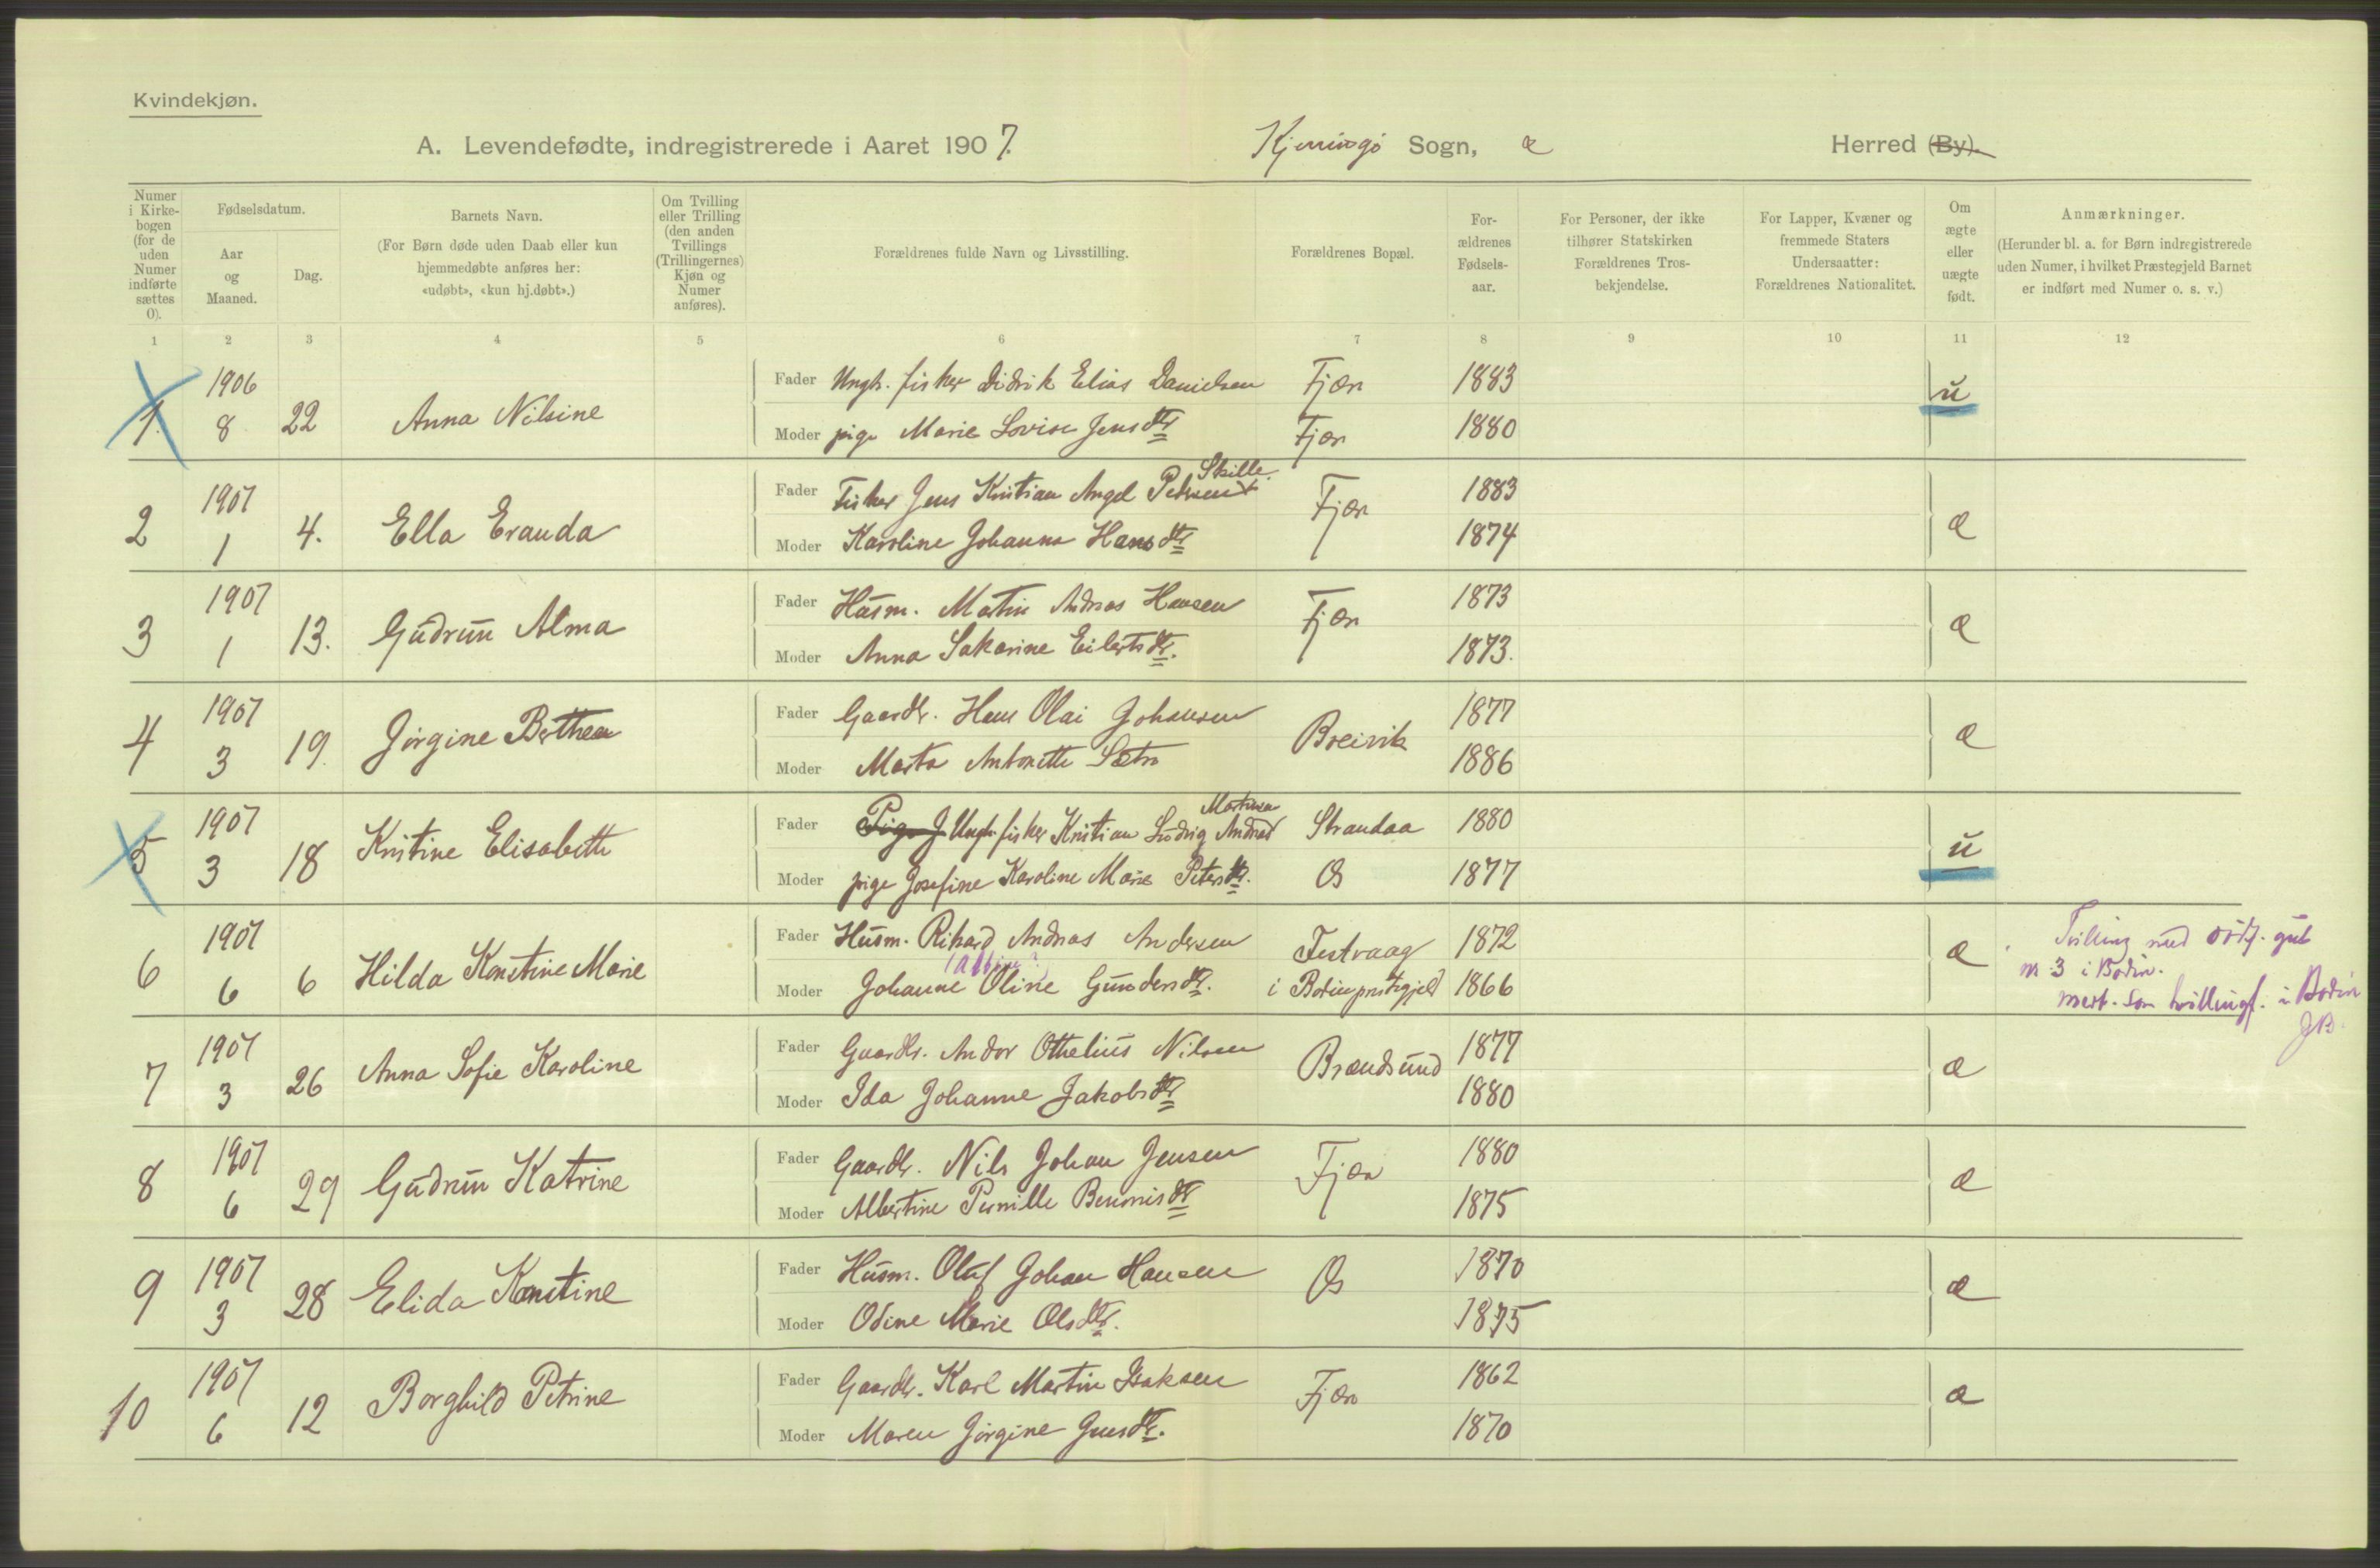 Kvindekjøn.
A. Levendefødte, indregistrerede i Aaret 1907. Kjerringø Sogn, Herred (By).
Numer i Kirkebogen (for de uden Numer indførte sættes 0).
Fødselsdatum.
Aar og Maaned.
Dag.
Barnets Navn.
(For Børn døde uden Daab eller kun hjemmedøbte anføres her: «udøbt», «kun hj.døbt».)
Om Tvilling eller Trilling (den anden Tvillings (Trillingernes) Kjøn og Numer anføres).
Forældrenes fulde Navn og Livsstilling.
Forældrenes Bopæl.
Forældrenes Fødselsaar.
For Personer, der ikke tilhører Statskirken Forældrenes Trosbekjendelse.
For Lapper, Kvæner og fremmede Staters Undersaatter: Forældrenes Nationalitet.
Om ægte eller uægte født.
Anmærkninger.
(Herunder bl. a. for Børn indregistrerede uden Numer, i hvilket Præstegjeld Barnet er indført med Numer o. s. v.)
1 2 3 4 5 6 7 8 9 10 11 12
1. 1906 8 22 Anna Nilsine
Fader Ungk. fisker Didrik Elias Danielsen Fjær 1883 u
Moder pige Marie Lovise Jensdtr Fjær 1880
2 1907 1 4. Ella Eranda
Fader Fisker Jens Kristian Angel Pedersen Skille Fjær 1883 æ
Moder Karoline Johanna Hansdtr 1874
3 1907 1 13. Gudrun Alma
Fader Husm. Martin Andreas Hansen Fjær 1873 æ
Moder Anna Sakarine Eilertsdtr. 1873.
4 1907 3 19. Jørgine Berthea
Fader Gaardbr. Hans Olai Johansen Breivik 1877 æ
Moder Marta Antonette Sætra 1886
5 1907 3 18 Kristine Elisabeth
Fader Pige J Ungk. fisker Kristian Ludvig Andreas Martinsen Strandaa 1880 u
Moder pige Josefine Karoline Marie Petersdtr. Øs 1877
6 1907 6 6 Hilda Konstine Marie
Fader Husm. Rikard Andreas Andersen Festvaag 1872 æ
Moder Johanne Oline Gundersdtr. i Bodin prestegjeld 1866
Tvilling med dødf. gut
nr. 3 i Bodin.
merk. som tvillingf. i Bodin
JB.
7 1907 3 26 Anna Sofie Karoline
Fader Gaardbr. Andor Othelius Nilsen Brændsund 1877 æ
Moder Ida Johanne Jakobsdtr 1880
8 1907 6 29 Gudrun Katrine
Fader Gaardbr. Nils Johan Jensen Fjær 1880 æ
Moder Albertine Pernille Benonisdtr 1875
9 1907 3 28 Elida Konstine
Fader Husm. Oluf Johan Hansen Øs 1870 æ
Moder Odine Marie Olsdtr. 1875
10 1907 6 12 Borghild Petrine
Fader Gaardbr. Karl Martin Isaksen Fjær 1862 æ
Moder Maren Jørgine Jensdtr. 1870